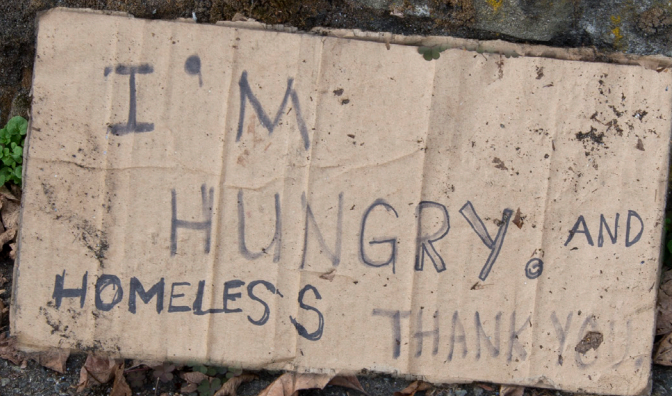 I'M
HUNGRY. AND
HOMELESS
THANK YOU.